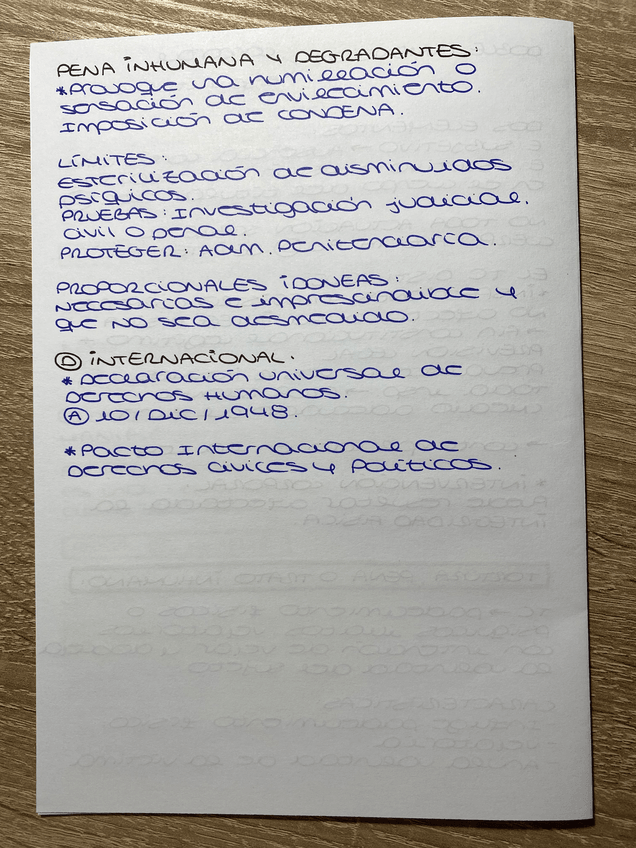 PENA INHUMANA Y DEGRADANTES:
*Provoque una humillación o
sensación de envilecimiento.
Imposición de CONDENA.
LÍMITES:
Esterilización de disminuidos
psíquicos.
PRUEBAS: Investigación judicial.
civil o penal.
PROTEGER: Adm. Penitenciaria.
PROPORCIONALES IDONEAS:
Necesarias e imprescindible y
que no sea desmedido.
D INTERNACIONAL.
*Declaración universal de
Derechos Humanos.
A 10/Dic/1948.
*Pacto Internacional de
Derechos civiles y Políticos.